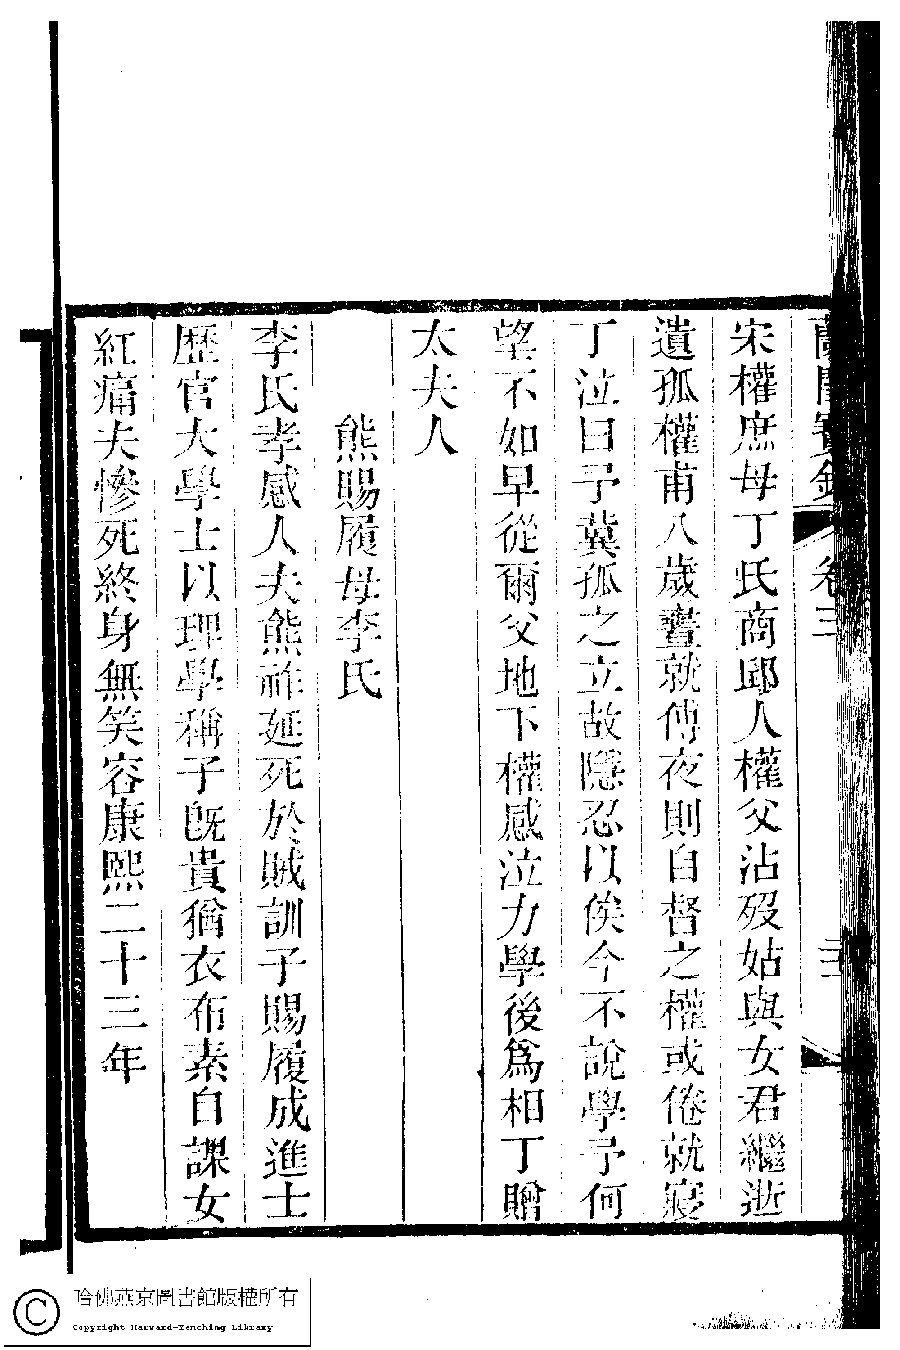 蘭閨寶錄 卷三
宋權庶母丁氏商邱人權父沾歿姑與女君繼逝
遺孤權甫八歲晝就傅夜則自督之權或倦就寢
丁泣曰予冀孤之立故隱忍以俟今不說學予何
望不如早從爾父地下權感泣力學後爲相丁贈
太夫人
熊賜履母李氏
李氏孝感人夫熊祚延死於賊訓子賜履成進士
歷官大學士以理學稱子旣貴猶衣布素自課女
紅痛夫慘死終身無笑容康熙二十三年
哈佛燕京圖書館版權所有
Copyright Harvard-Yenching Library